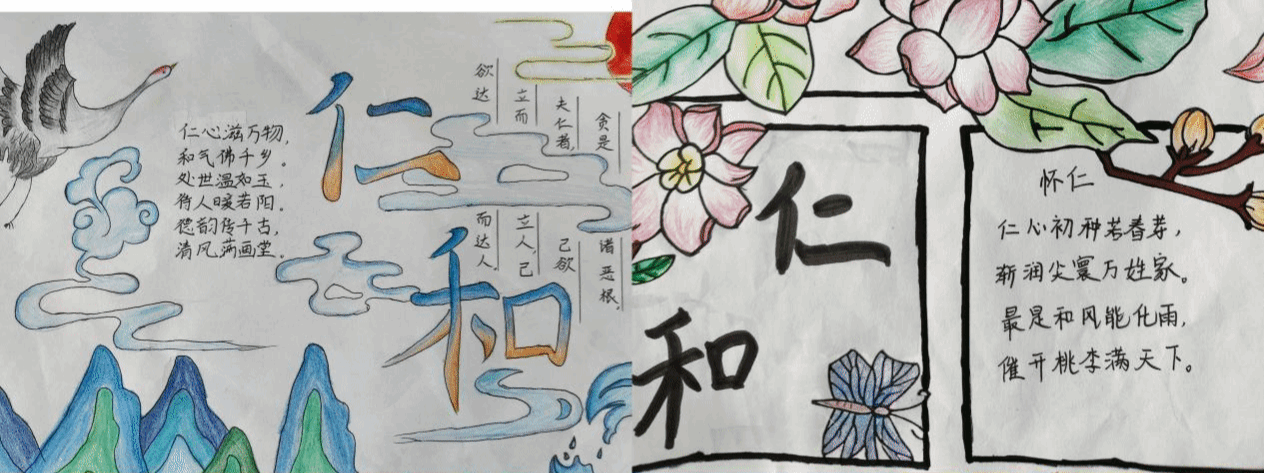 仁心滋万物，
和气佛千乡。
处世温如玉，
待人暖若阳。
德韵传千古，
清风满画堂。
仁
和
贪是
诸恶根。
夫仁者，
己欲
立而
立人，己
欲达
而达人。
仁
和
怀仁
仁心初种若春芽，
渐润尘寰万姓家。
最是和风能化雨，
催开桃李满天下。